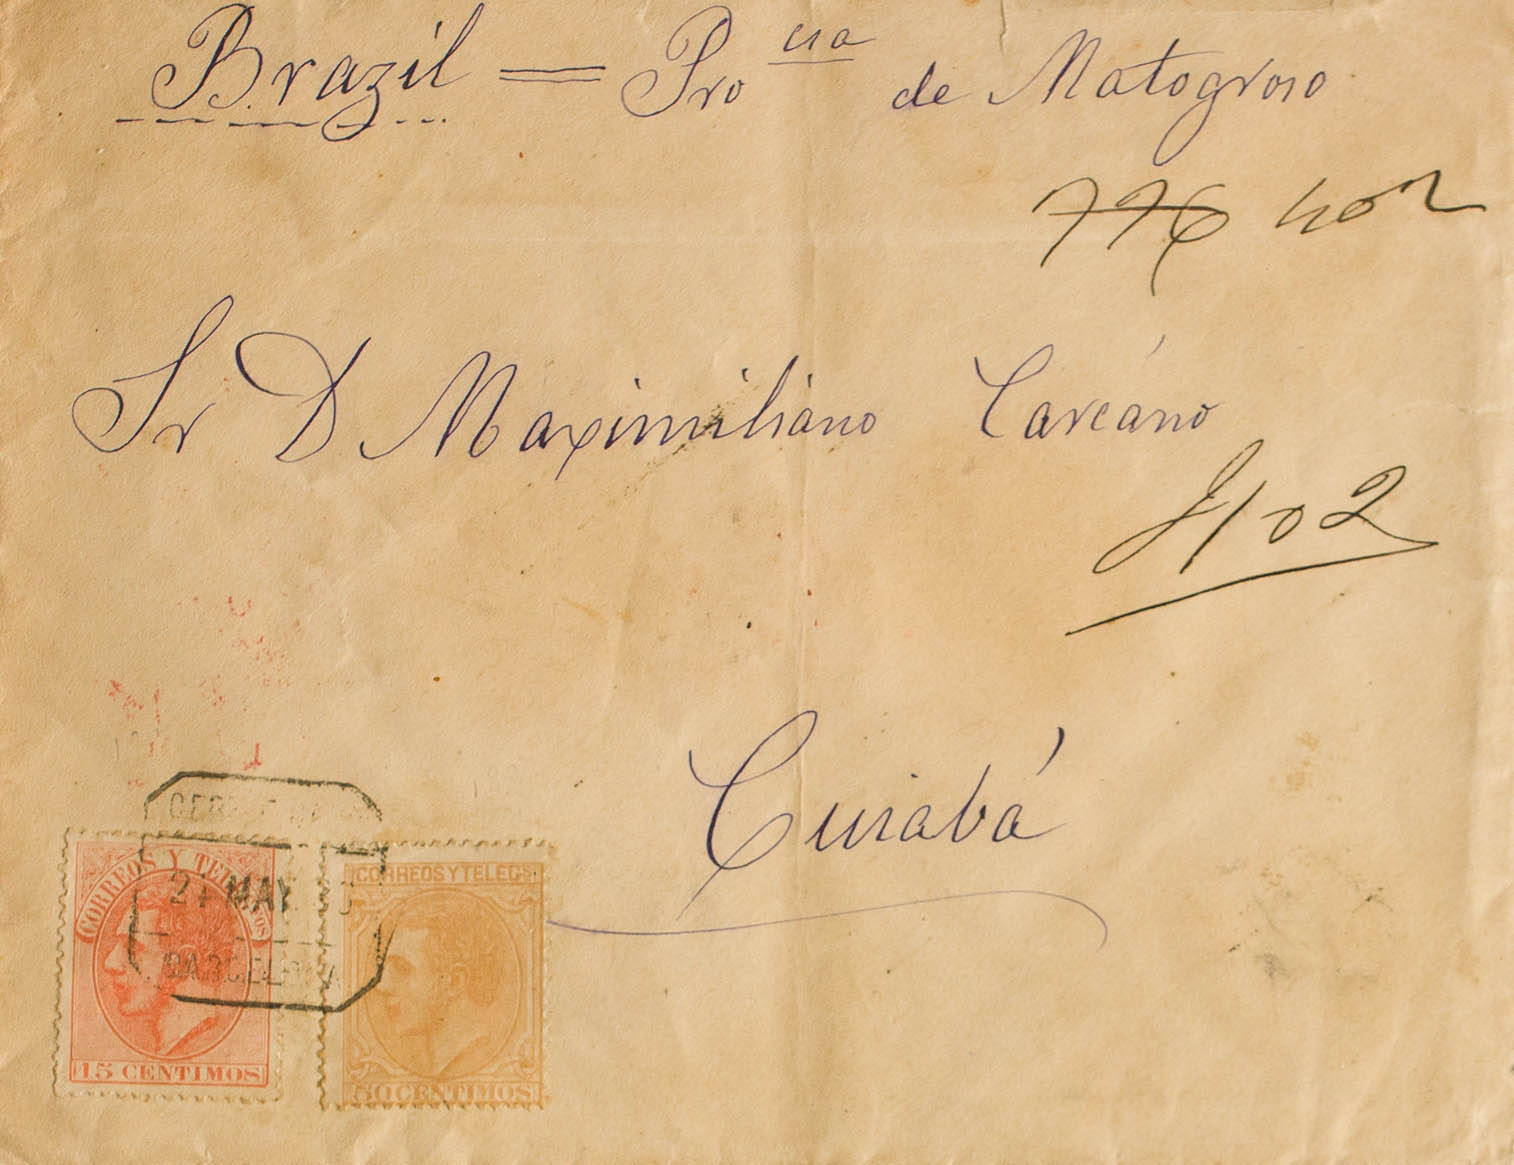 Brazil = Pro cia de Matogroso
776 402
Sr D Maximiliano Carcáno
102
Cuiabá
CORREOS Y TELEGRAFOS
15 CENTIMOS
CORREOS Y TELEGS
50 CENTIMOS
21 MAY
BARCELONA